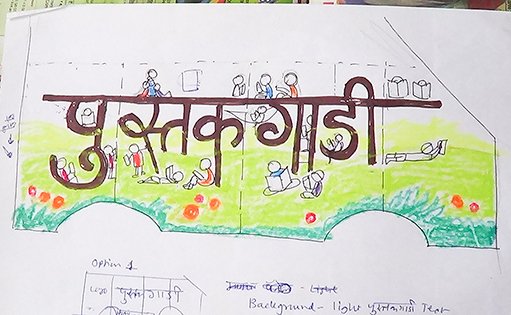 पुस्तकगाडी
Option 1
Logo पुस्तकगाडी
Background - light पुस्तकगाडी Text